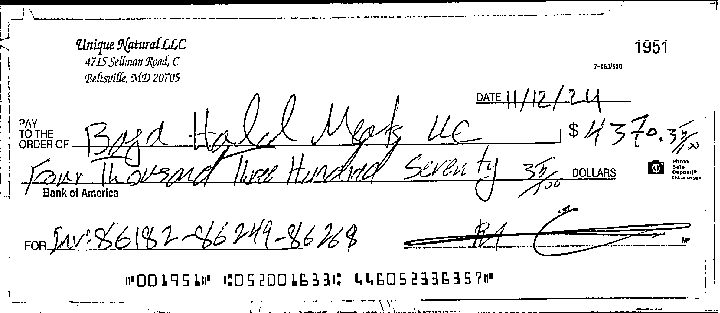 Unique Natural LLC
1951
4715 Sellman Road, C
Beltsville, MD 20705
DATE 11/12/24
PAY
TO THE
ORDER OF Halal Meats LLC $ 4370.35/00
Four Thousand Three Hundred Seventy 35/100 DOLLARS
Bank of America
FOR Inv:86182-86249-86268
⑈001951⑈ ⑆052001633⑆ 446052336357⑈